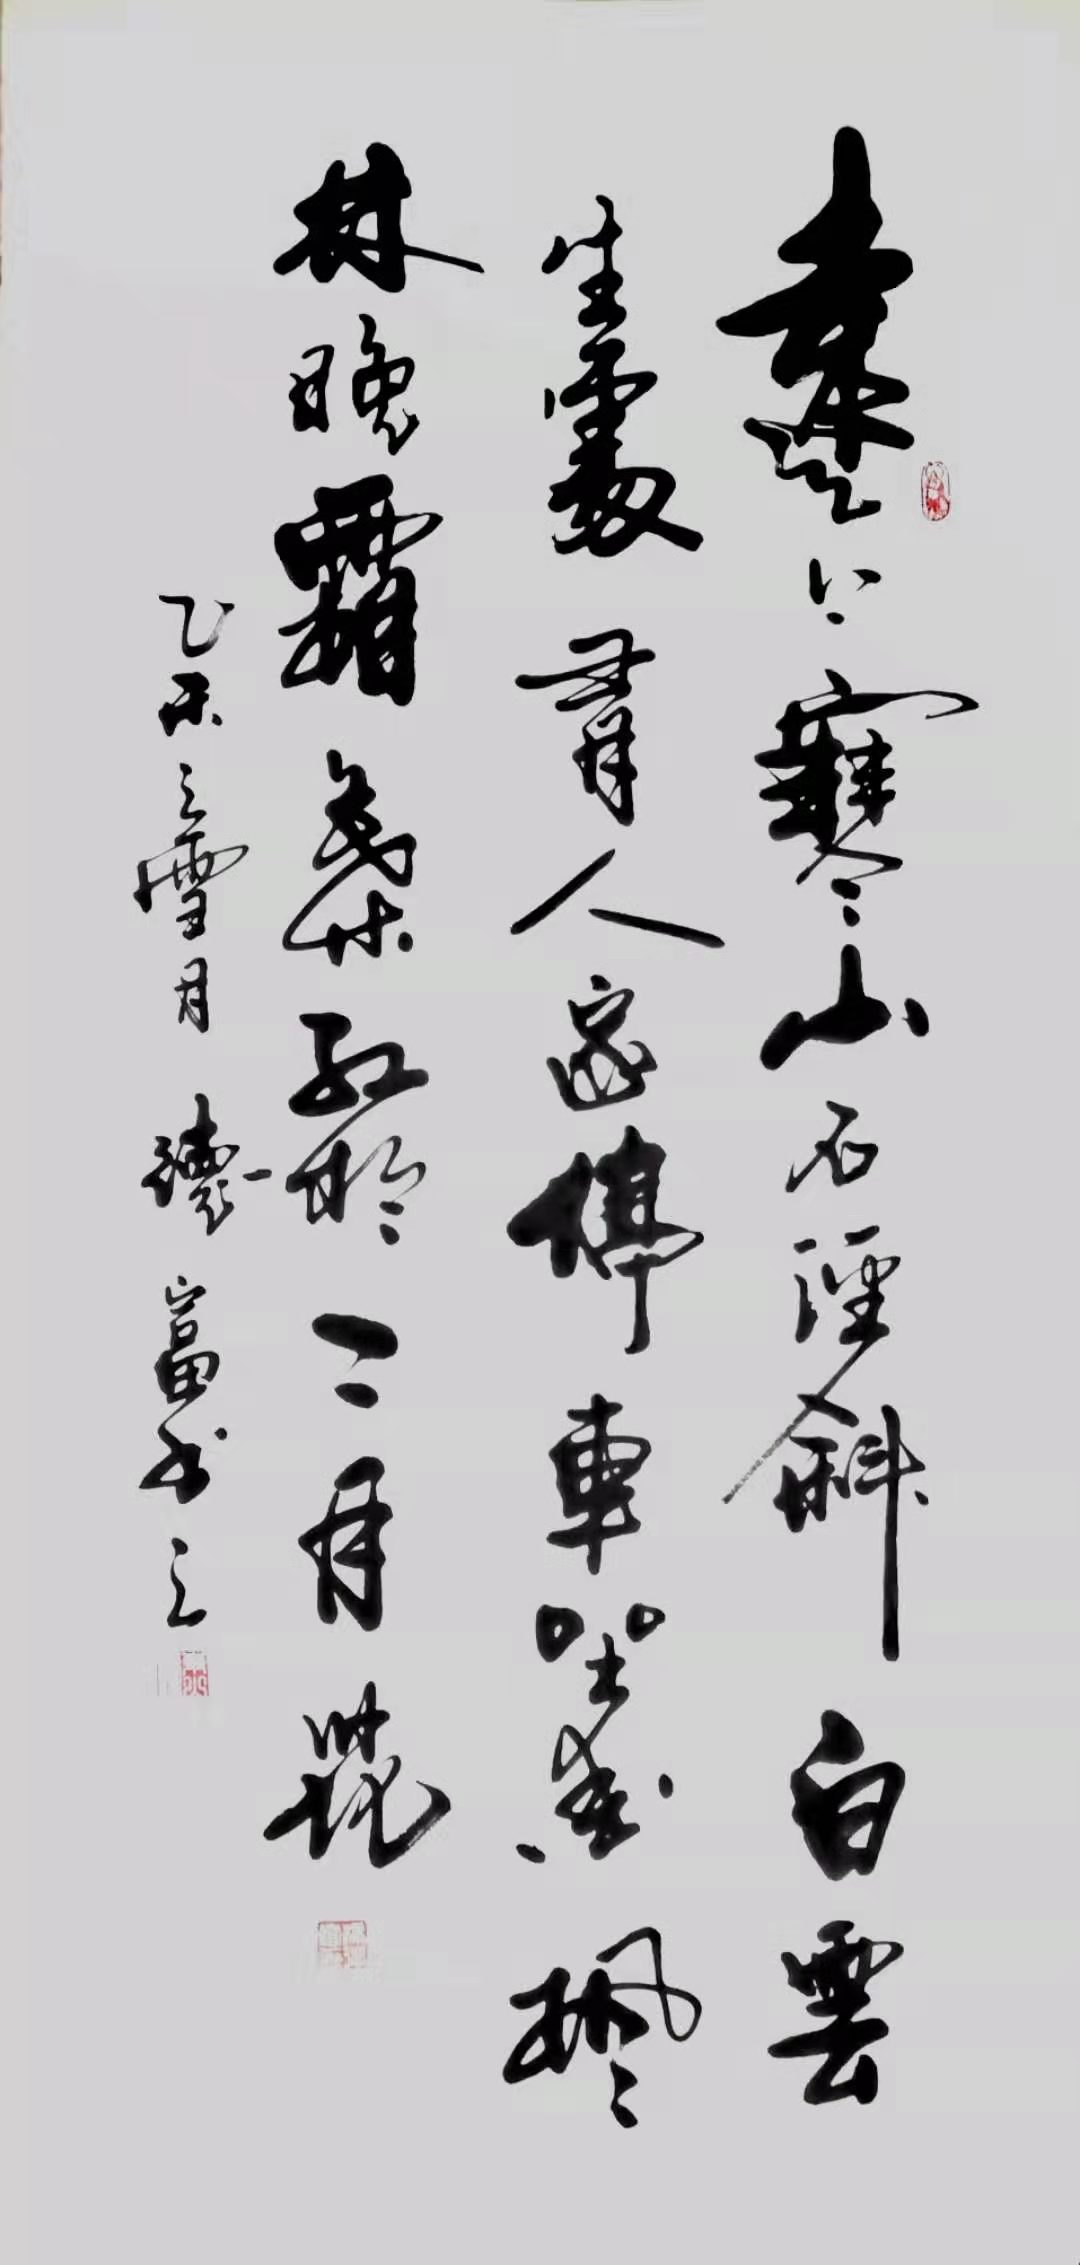 遠上寒山石徑斜白雲
生處有人家停車坐愛楓
林晚霜葉紅於二月花
乙未之雪月 富书之